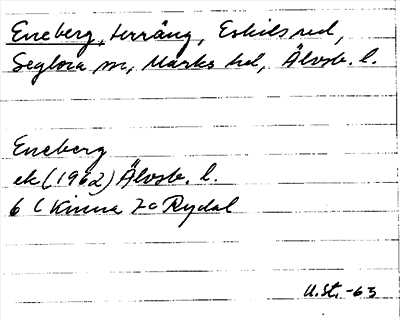 Eneberg, terräng, Eskilsred,
Seglora sn, Marks hd, Älvsb. l.
Eneberg
ek (1962) Älvsb. l.
6 C Kinna 7c Rydal
U.St. -63